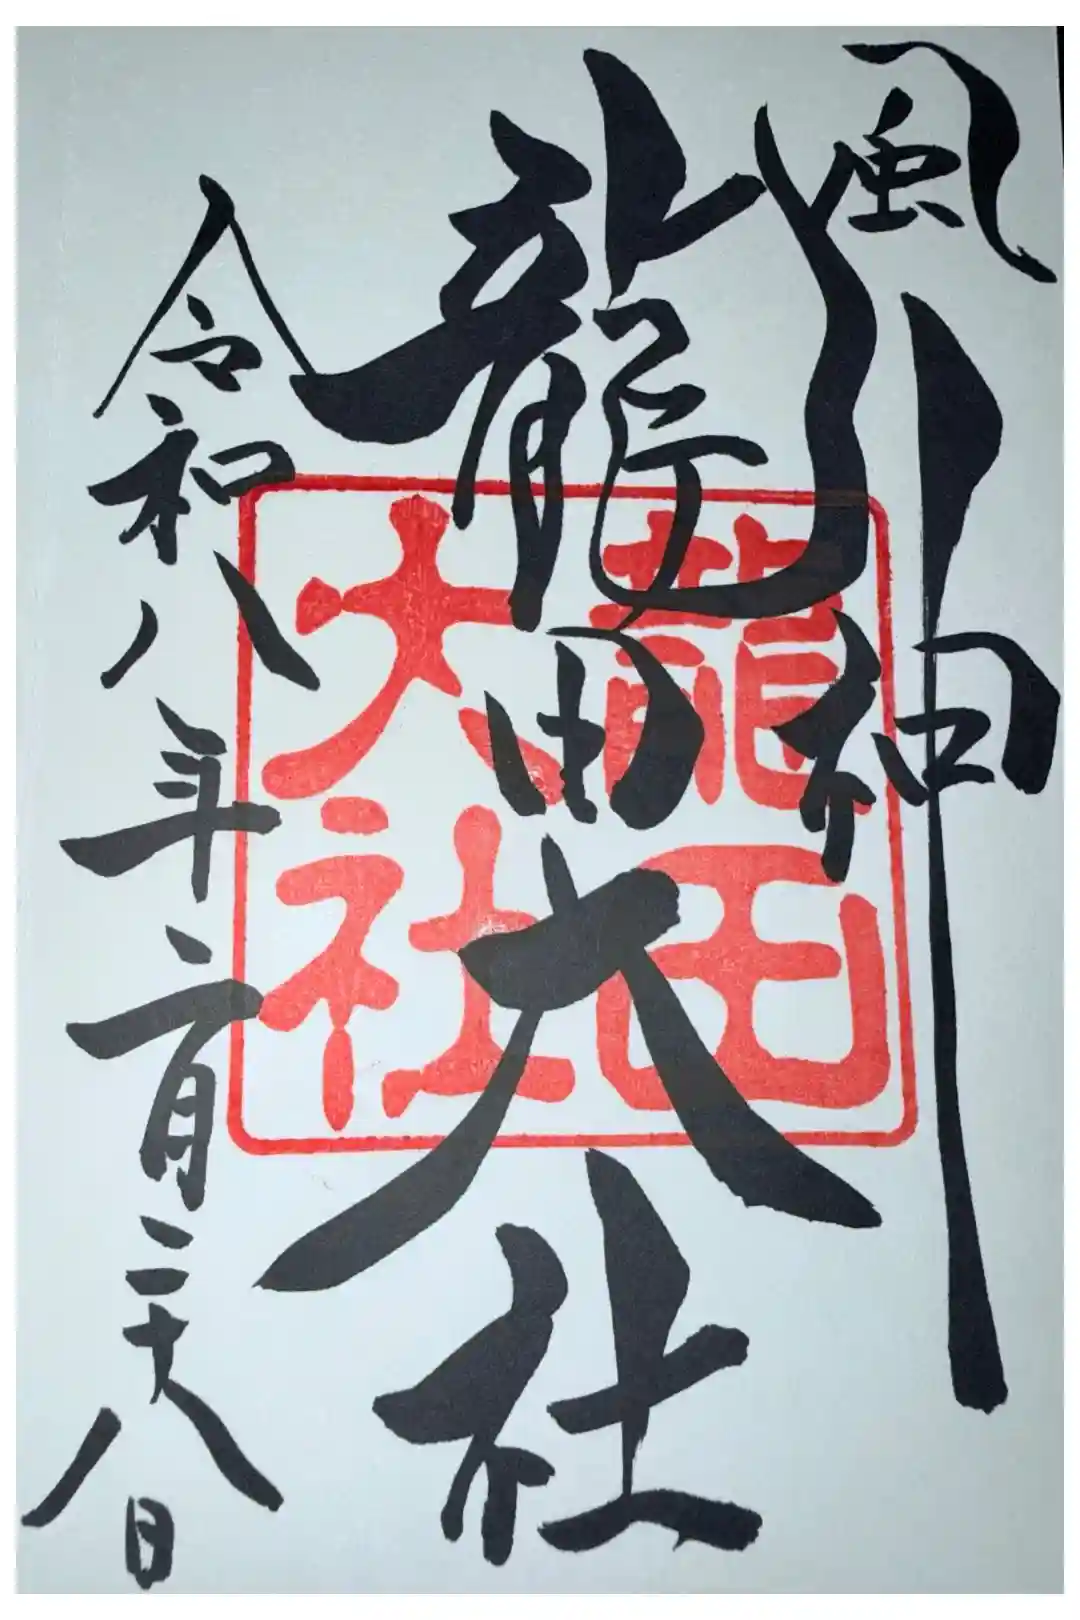 風神
龍田大社
令和八年二月二十八日
龍田
大社